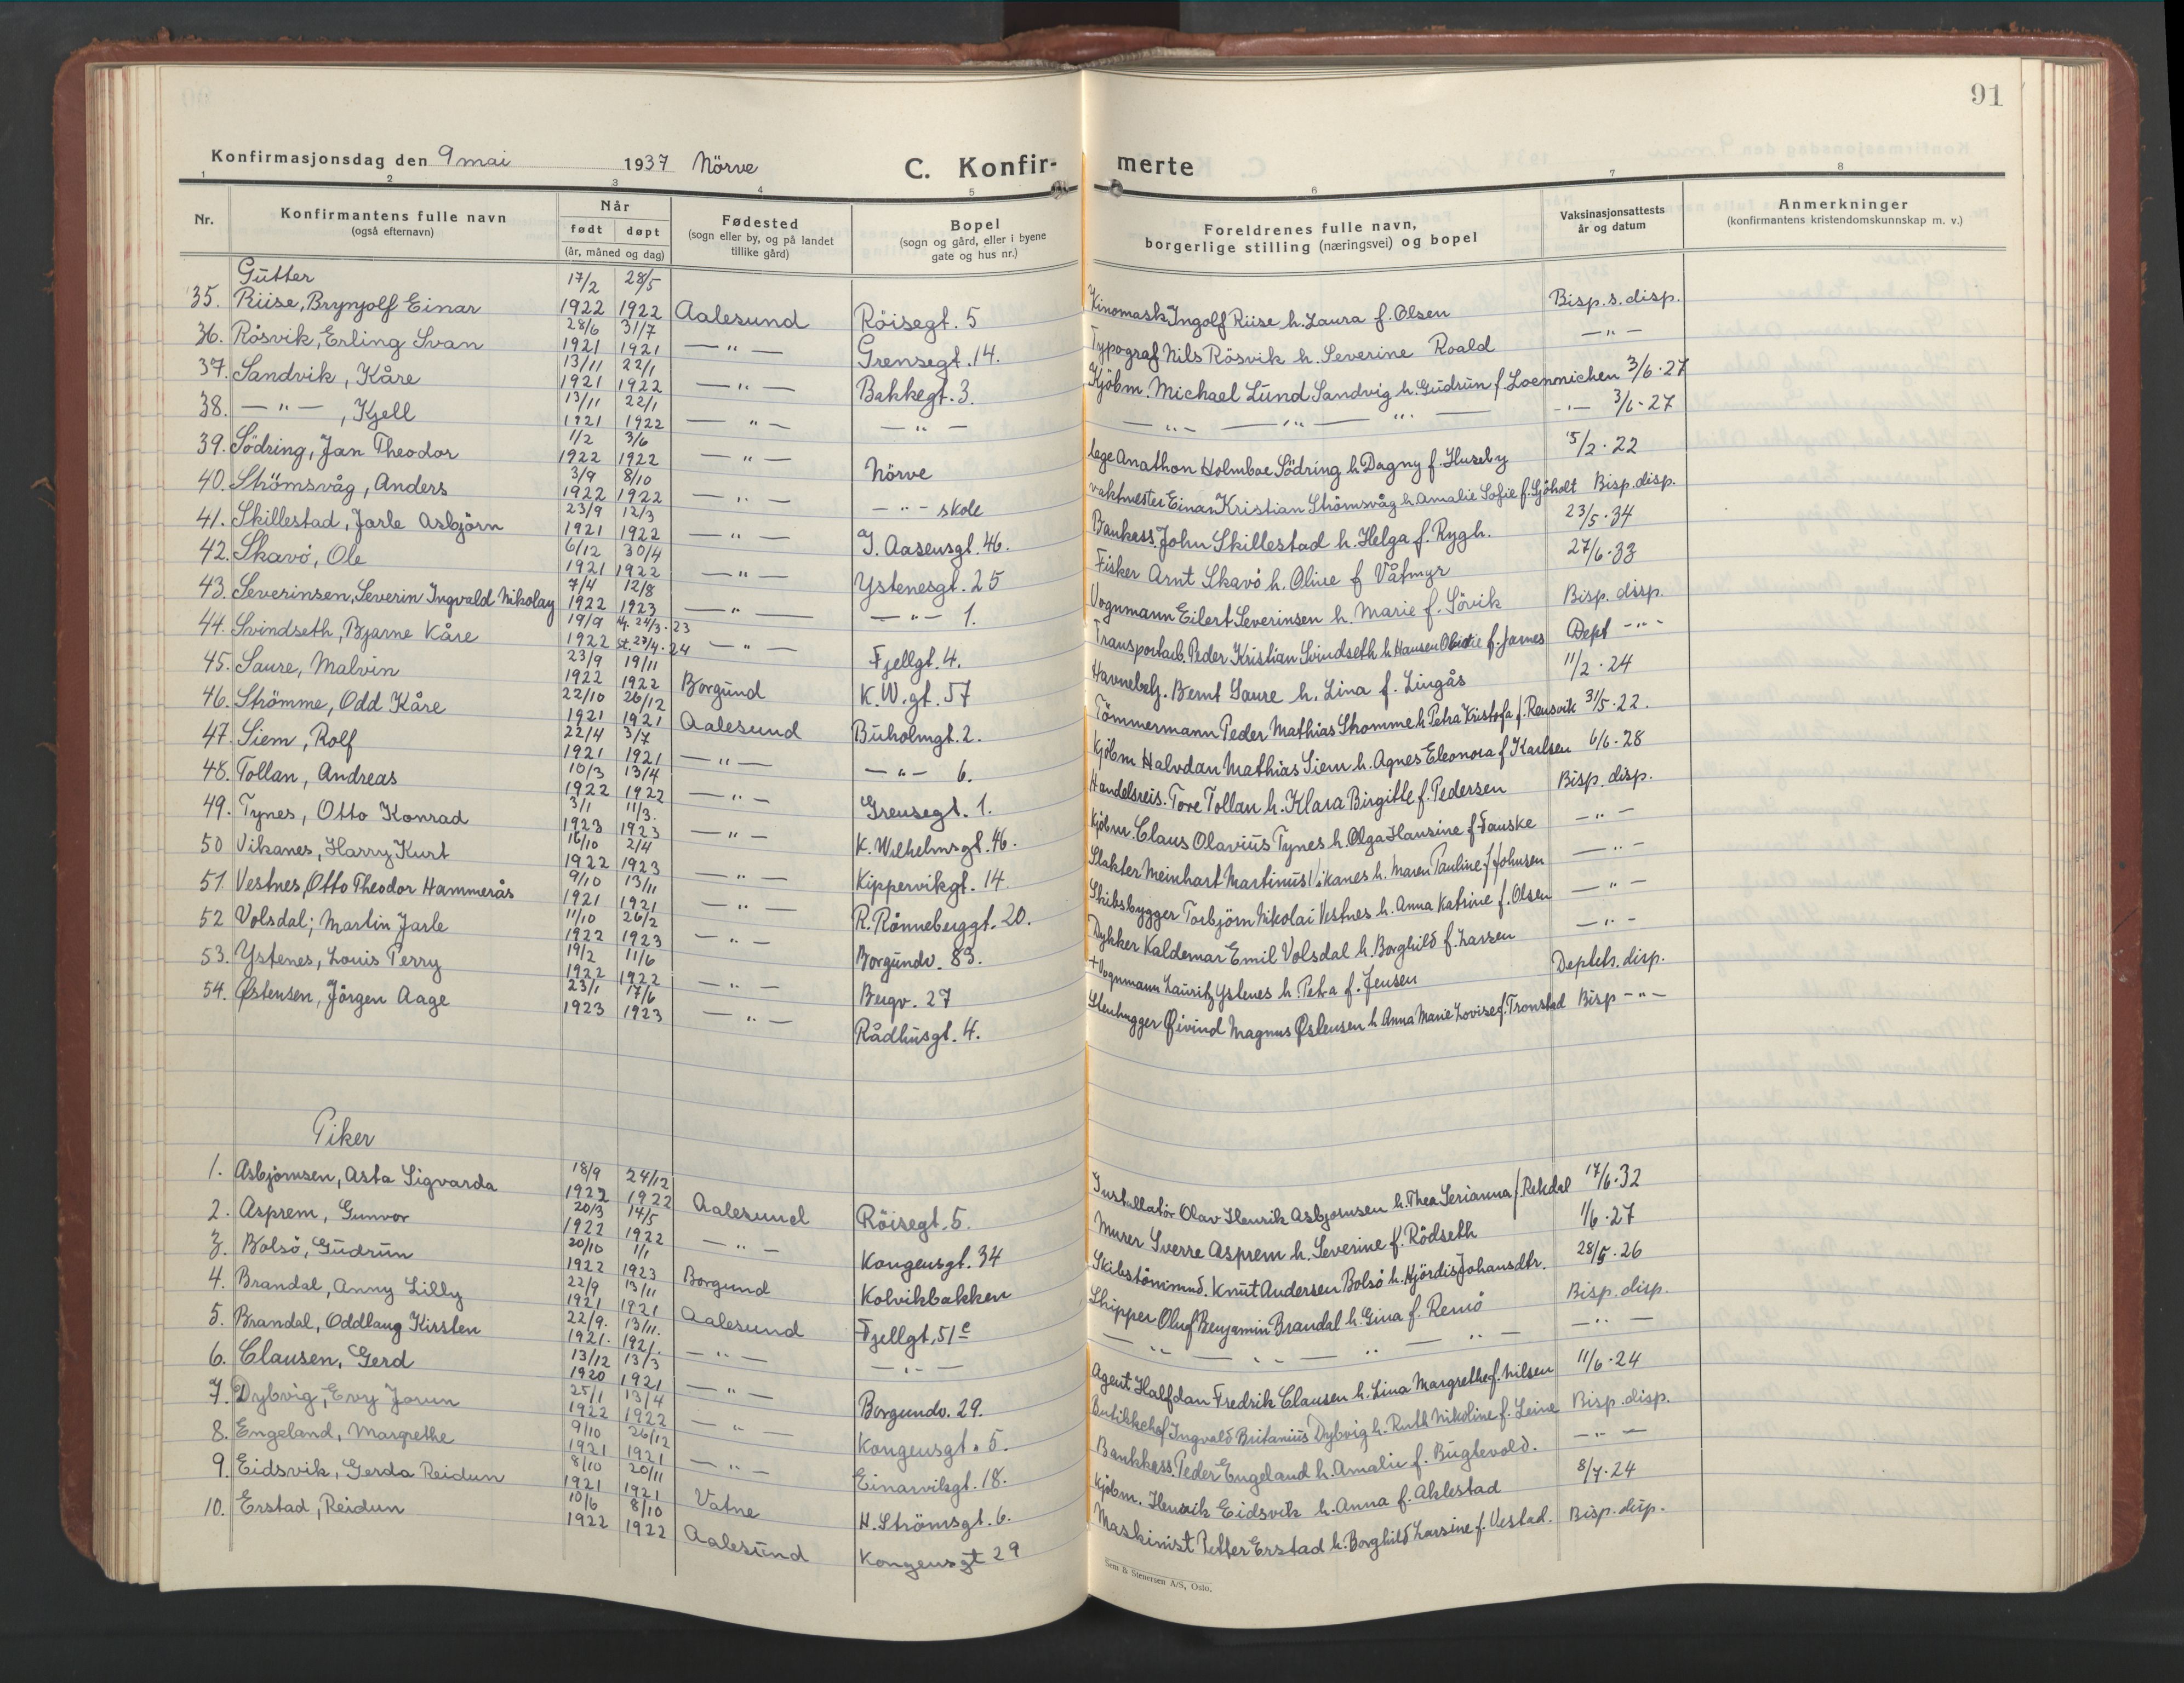 91
Konfirmasjonsdag den 9 mai 1937 Nörve C. Konfir- merte
1 2 3 4 5 6 7 8
Nr. Konfirmantens fulle navn (også efternavn) Når født døpt (år, måned og dag) Fødested (sogn eller by, og på landet tillike gård) Bopel (sogn og gård, eller i byene gate og hus nr.) Foreldrenes fulle navn, borgerlige stilling (næringsvei) og bopel Vaksinasjonsattests år og datum Anmerkninger (konfirmantens kristendomskunnskap m. v.)
Gutter
35. Riise, Brynjolf Einar 17/2 1922 28/5 1922 Aalesund Röisegt. 5 Kinomask. Ingolf Riise h. Laura f. Olsen Bisp. s. disp.
36. Rösvik, Erling Svan 28/6 1921 31/7 1921 — " — Grensegt. 14. Typograf Nils Rösvik h. Severine Roald — " —
37. Sandvik, Kåre 13/11 1921 22/1 1922 — " — Bakkegt. 3. Kjöbm. Michael Lund Sandvig h. Gudrun f. Loennichen 3/6·27
38. — " —, Kjell 13/11 1921 22/1 1922 — " — — " — — " — — " — " — -"- 3/6·27
39. Södring, Jan Theodor 1/2 1922 3/6 1922 — " — Nörve lege Anathon Holmboe Södring h. Dagny f. Huseby 15/2·22
40. Strömsvåg, Anders 3/9 1922 8/10 1922 — " — — " — skole vaktmester Einar Kristian Strömsvåg h. Amalie Sofie f. Sjöholt Bisp. disp.
41. Skillestad, Jarle Asbjörn 23/9 1921 12/3 1922 — " — I. Aasensgt. 46. Bankass. John Skillestad h. Helga f. Rygh. 23/5·34
42. Skavö, Ole 6/12 1921 30/4 1922 — " — Ystenesgt. 25 Fisker Arnt Skavö h. Oline f Våtmyr 27/6·33
43. Severinsen, Severin Ingvald Nikolay 7/4 1922 12/8 1923 — " — — " — 1. Vognmann Eilert Severinsen h. Marie f. Sövik Bisp. disp.
44. Svindseth, Bjarne Kåre 19/9 1922 24/3·23 st. 27/4·24 — " — Fjellgt. 4. Transportarb. Peder Kristian Svindseth h Hansen f. James Dept — " —
45. Saure, Malvin 23/9 1922 19/11 1922 Borgund K. W. gt. 57 Havnebetj. Bernt Saure h. Lina f. Lingås 11/2·24
46. Strömme, Odd Kåre 22/10 1921 26/12 1921 Aalesund Buholmgt. 2. Tömmermann Peder Mathias Strömme h Petra Kristofa f. Rensvik 31/5·22.
47. Siem, Rolf 22/4 1921 3/7 1921 — " — — " — 6. Kjöbm Halvdan Mathias Siem h. Agnes Eleonora f Karlsen 6/6·28
48. Tollan, Andreas 10/3 1922 13/4 1922 — " — Grensegt. 1. Handelsreis. Tore Tollan h. Klara Birgitte f. Pedersen Bisp. disp.
49. Tynes, Otto Konrad 3/1 1923 11/3. 1923 — " — K. Wilhelmsgt. 46. Kjöbm. Claus Olavius Tynes h. Olga Hansine f. Fauske — " —
50 Vikanes, Harry Kurt 16/10 1922 2/4 1923 — " — Kippervikgt. 14. Slakter Meinhart Martinus Vikanes h. Maren Pauline f Johnsen — " —
51. Vestnes, Otto Theodor Hammerås 9/10 1921 13/11 1921 — " — R. Rönneberggt. 20. Skibsbygger Torbjörn Nikolai Vestnes h. Anna Katrine f. Olsen — " —
52 Volsdal, Martin Jarle 11/10 1922 26/2 1923 — " — Borgundv. 83. Dykker Kaldemar Emil Volsdal h. Borghild f. Larsen — " —
53. Ystenes, Louis Perry 19/2 1922 11/6 1922 — " — Bergv. 27 + Vognmann Lauritz Ystenes h. Petra f. Jensen Deptets. disp.
54. Østensen, Jörgen Aage 23/1 1923 17/6 1923 — " — Rådhusgt. 4. Stenhugger Øivind Magnus Østensen h Anna Marie Lovise f. Tronstad Bisp — " —
Piker
1. Asbjörnsen, Asta Sigvarda 18/9 1922 24/12 1922 Aalesund Röisegt. 5. Installatör Olav Henrik Asbjörnsen h. Thea Serianna f. Rekdal 17/6·32
2. Asprem, Gunvor 20/3 1922 14/5 1922 — " — Kongensgt. 34 Murer Sverre Asprem h. Severine f. Rödseth 1/6·27
3. Bolsö, Gudrun 20/10 1922 1/1 1923 Borgund Kolvikbakken Skibstömmmd. Knut Andersen Bolsö h. Hjördis Johansdtr. 28/5·26
4. Brandal, Anny Lilly 22/9 1921 13/11 1921 Aalesund Fjellgt. 51c Skipper Oluf Benjamin Brandal h. Gina f. Remö Bisp. disp.
5. Brandal, Oddlaug Kirsten 22/9. 1921. 13/11. 1921. — " — — " — — " — " — " — — " —
6. Clausen, Gerd 13/12 1920 13/3 1921 — " — Borgundv. 29. Agent Halfdan Fredrik Clausen h. Lina Margrethe f. Nilsen 11/6·24
7. Dybvig, Evy Jorun 25/1 1922 13/4 1922 — " — Kongensgt. 5. Butikkchef Ingvald Britanius Dybvig h. Ruth Nikoline f. Leine Bisp. disp.
8. Engeland, Margrethe 9/10 1921 26/12 1921 — " — Einarvikgt. 18. Bankkass. Peder Engeland h. Amalie f. Bugtevold. — " —
9. Eidsvik, Gerda Reidun 8/10 1921 20/11 1921 Vatne H. Strömsgt. 6. Kjöbm. Henrik Eidsvik h. Anna f. Aklestad 8/7·24
10. Erstad, Reidun 10/6 1922 8/10 1922 Aalesund Kongensgt 29 Maskinist Petter Erstad h. Borghild Larsine f. Vestad. Bisp. disp.
Sem & Stenersen A/S, Oslo.